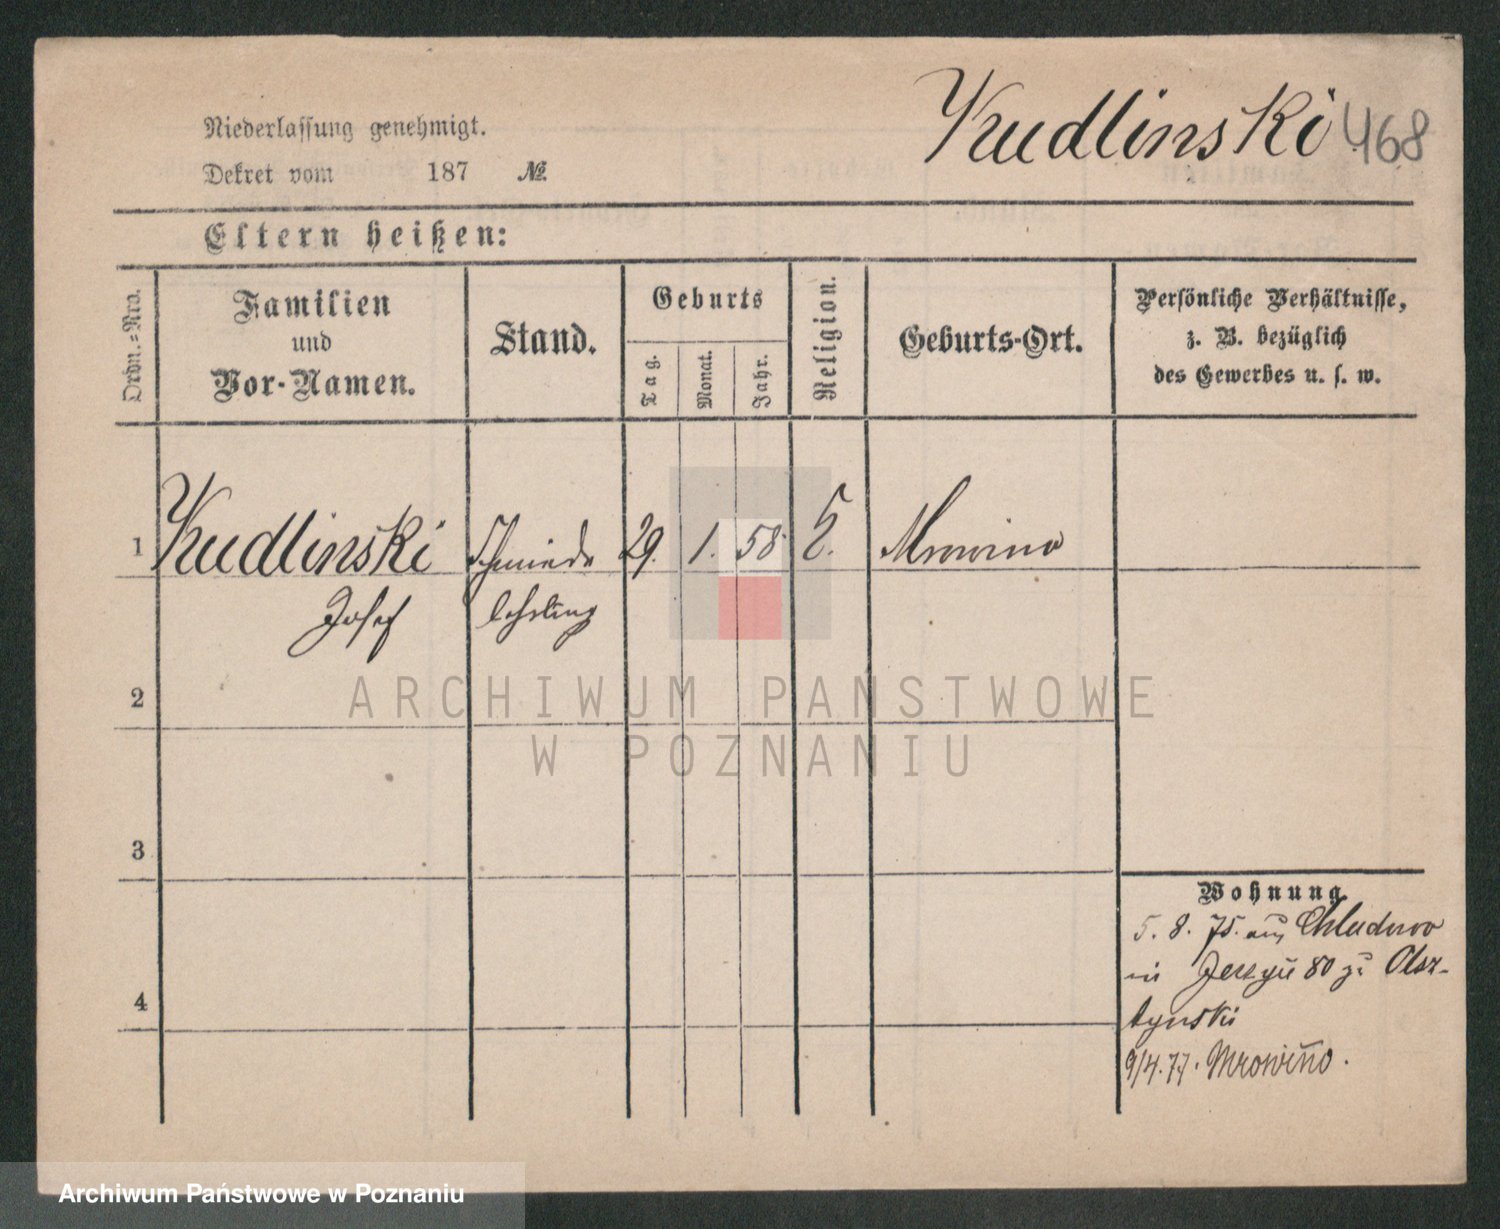 Kudlinski 468
Niederlassung genehmigt.
Dekret vom 187 №
Eltern heißen:
Ordn.=Nro.
Familien
und
Vor-Namen.
Stand.
Geburts
Tag.
Monat.
Jahr.
Religion.
Geburts-Ort.
Persönliche Verhältnisse,
z. B. bezüglich
des Gewerbes u. s. w.
1 Kudlinski Schmiede 29. 1. 58 Mrowino
Josef lehrling
2
3
4
Wohnung
5. 8. 75. aus Chludowo
in Jerzyce 80 zu Olsz-
tynski
9/4. 77. Mrowino.
ARCHIWUM PAŃSTWOWE
W POZNANIU
Archiwum Państwowe w Poznaniu